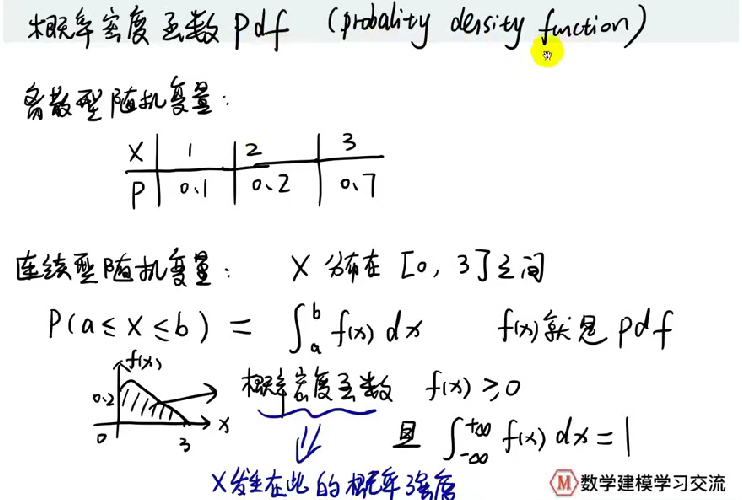 概率密度函数 pdf (probality density function)
离散型随机变量:
X 1 2 3
P 0.1 0.2 0.7
连续型随机变量: X 分布在 [0, 3] 之间
P(a≤X≤b) = ∫_a^b f(x) dx f(x) 就是 pdf
f(x)
0.2
0 3 x
概率密度函数 f(x) ≥ 0
且 ∫_{-∞}^{+∞} f(x) dx = 1
X发生在此的概率强度
M 数学建模学习交流